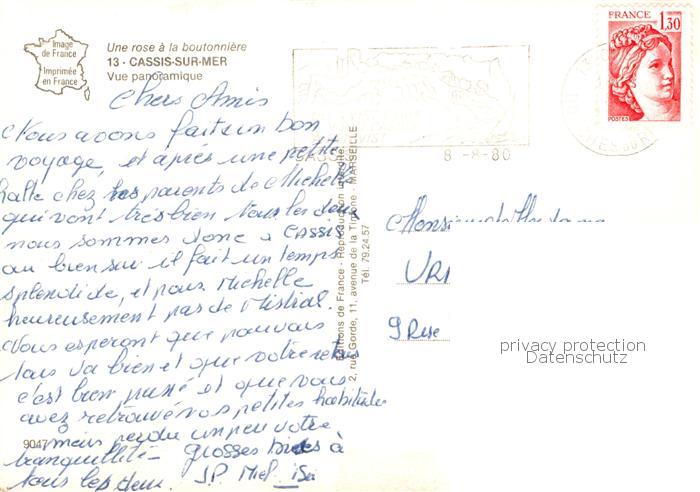 Image
de France
Imprimée
en France
Une rose à la boutonnière
13 - CASSIS-SUR-MER
Vue panoramique
FRANCE
1,30
POSTES
8-8-80
Chers Amis
Nous avons fait un bon
voyage, et après une petite
halte chez les parents de Michelle
qui vont très bien tous les deux
nous sommes donc à CASSIS
ou bien sur il fait un temps
splendide, et pour Michelle
heureusement pas de Mistral.
Nous esperont que pour vous
tous va bien et que votre retour
c'est bien passé et que vous
avez retrouvé vos petites habitudes
mais perdu un peu votre
tranquillité - grosses bises à
tous les deux. J.P. Mich Isa
9047
Editions de France - Reproduction
2, rue Gorde, 11, avenue de la Timone - MARSEILLE
Tél. 79.24.57
Monsieur et Madame
URI
9 Rue
privacy protection
Datenschutz